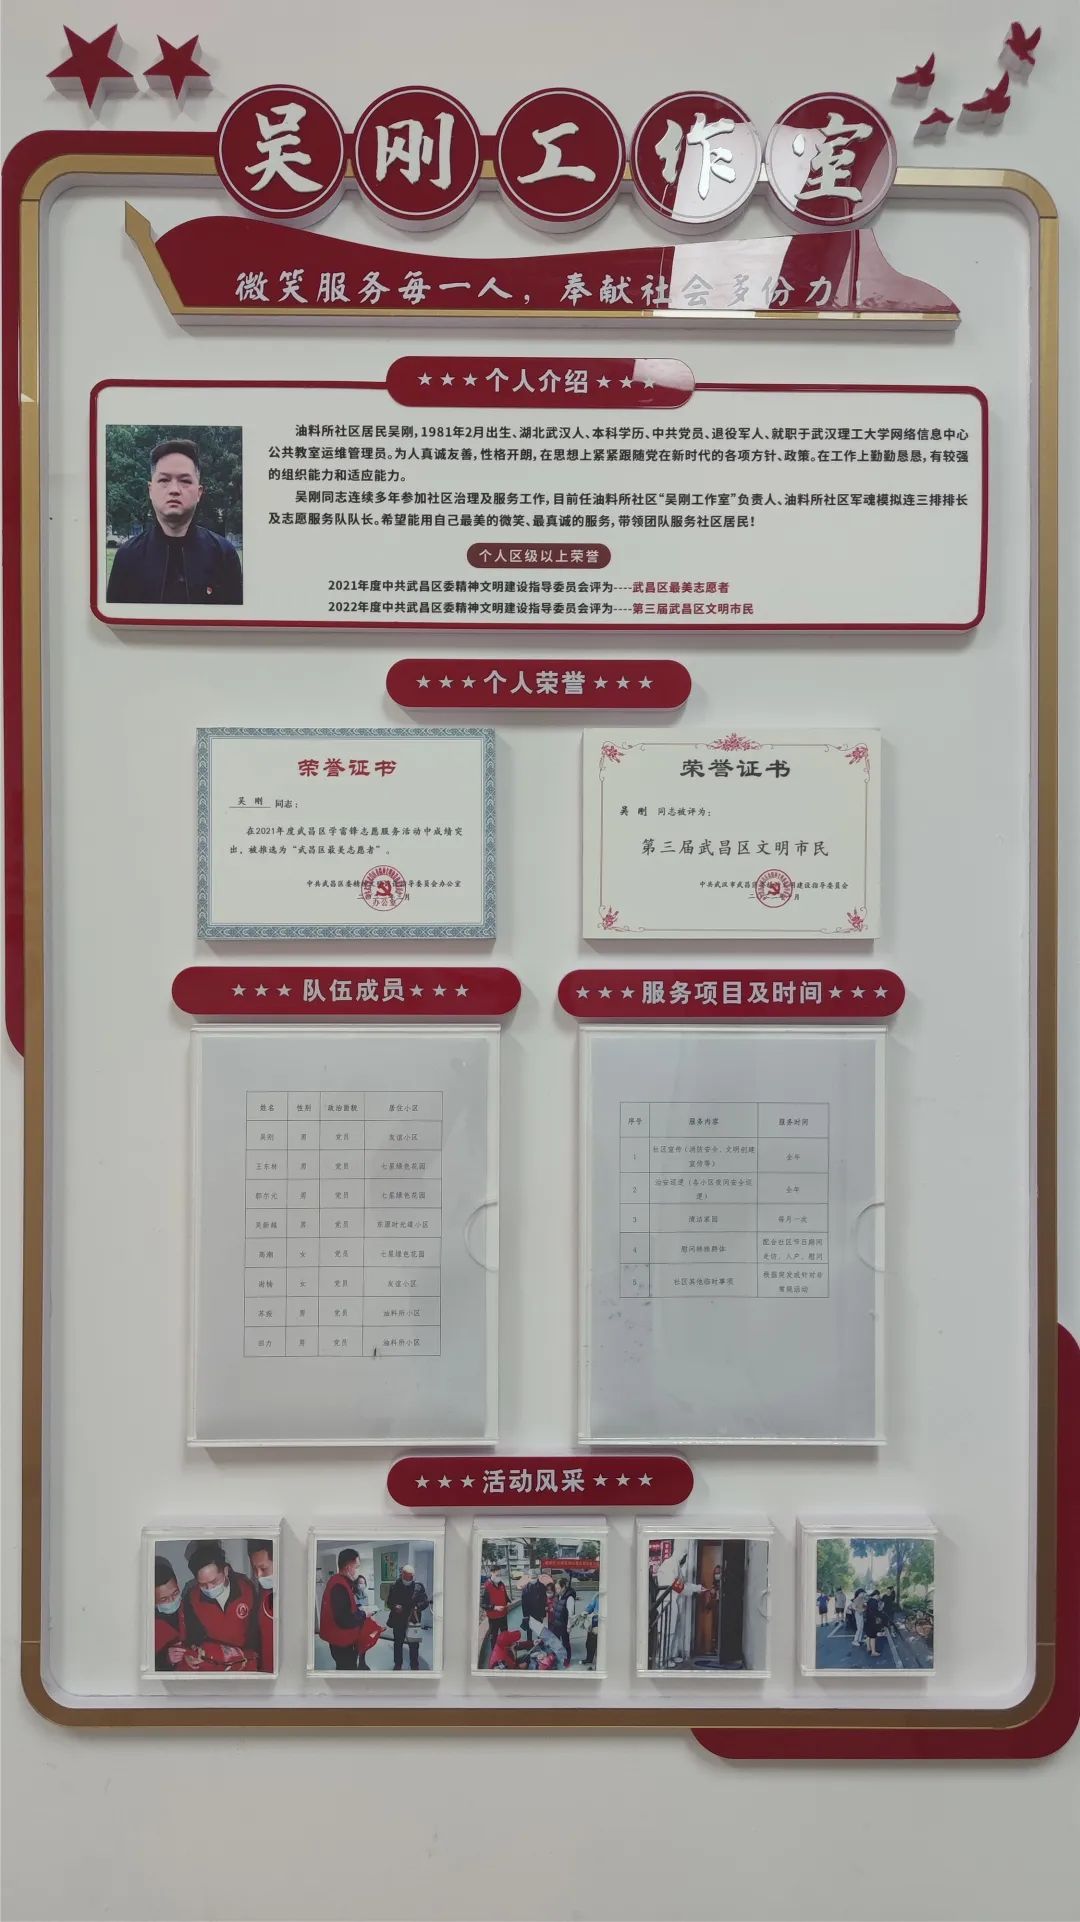 吴刚工作室
微笑服务每一人，奉献社会多份力！
★★★个人介绍★★★
油料所社区居民吴刚,1981年2月出生、湖北武汉人、本科学历、中共党员、退役军人、就职于武汉理工大学网络信息中心
公共教室运维管理员。为人真诚友善,性格开朗,在思想上紧紧跟随党在新时代的各项方针、政策。在工作上勤勤恳恳,有较强
的组织能力和适应能力。
吴刚同志连续多年参加社区治理及服务工作,目前任油料所社区“吴刚工作室”负责人、油料所社区军魂模拟连三排排长
及志愿服务队队长。希望能用自己最美的微笑、最真诚的服务,带领团队服务社区居民!
个人区级以上荣誉
2021年度中共武昌区委精神文明建设指导委员会评为----武昌区最美志愿者
2022年度中共武昌区委精神文明建设指导委员会评为----第三届武昌区文明市民
★★★个人荣誉★★★
荣誉证书
吴 刚 同志：
在2021年度武昌区学雷锋志愿服务活动中成绩突
出，被推选为“武昌区最美志愿者”。
中共武昌区委精神文明建设指导委员会办公室
办公室
荣誉证书
吴 刚 同志被评为：
第三届武昌区文明市民
中共武汉市武昌区委精神文明建设指导委员会
★★★队伍成员★★★
姓名 性别 政治面貌 居住小区
吴刚 男 党员 友谊小区
王东林 男 党员 七星绿色花园
郭尔元 男 党员 七星绿色花园
吴新越 男 党员 东原时光道小区
高潮 女 党员 七星绿色花园
谢楠 女 党员 友谊小区
苏振 男 党员 油料所小区
田力 男 党员 油料所小区
★★★服务项目及时间★★★
序号 服务内容 服务时间
1 社区宣传（消防安全、文明创建宣传等） 全年
2 治安巡逻（各小区夜间安全巡逻） 全年
3 清洁家园 每月一次
4 慰问特殊群体 配合社区节日期间走访、入户、慰问
5 社区其他临时事项 根据突发或针对非常规活动
★★★活动风采★★★